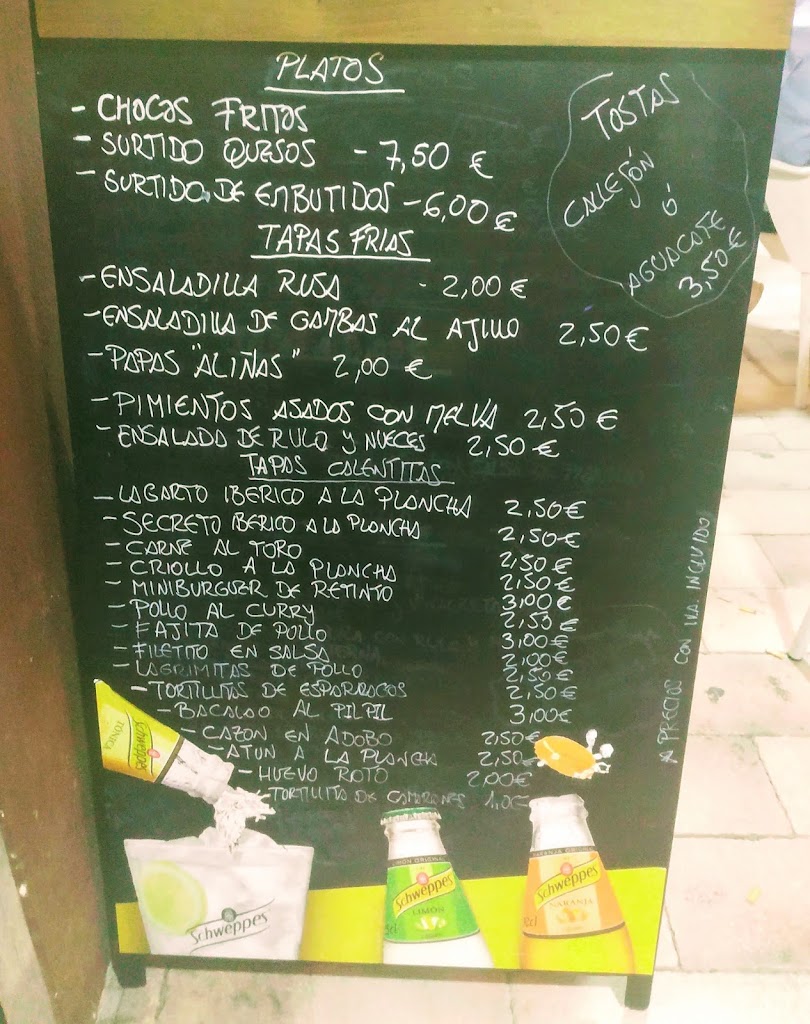 PLATOS
- CHOCOS FRITOS
- SURTIDO QUESOS - 7,50 €
- SURTIDO DE EMBUTIDOS - 6,00 €
TOSTAS
CALLEJÓN
Ó
AGUACATE
3,50 €
TAPAS FRIAS
- ENSALADILLA RUSA - 2,00 €
- ENSALADILLA DE GAMBAS AL AJILLO 2,50 €
- PAPAS "ALIÑAS" 2,00 €
- PIMIENTOS ASADOS CON MELVA 2,50 €
- ENSALADA DE RULO Y NUECES 2,50 €
TAPAS CALENTITAS
- LAGARTO IBERICO A LA PLANCHA 2,50 €
- SECRETO IBERICO A LA PLANCHA 2,50 €
- CARNE AL TORO 2,50 €
- CRIOLLO A LA PLANCHA 2,50 €
- MINIBURGUER DE RETINTO 3,00 €
- POLLO AL CURRY 2,50 €
- FAJITA DE POLLO 3,00 €
- FILETITO EN SALSA 2,00 €
- LAGRIMITAS DE POLLO 2,50 €
- TORTILLITAS DE ESPARRAGOS 2,50 €
- BACALAO AL PILPIL 3,00 €
- CAZON EN ADOBO 2,50 €
- ATUN A LA PLANCHA 2,50 €
- HUEVO ROTO 2,00 €
- TORTILLITA DE CAMARONES
* PRECIOS CON IVA INCLUIDO
Schweppes
TONICA
Schweppes
LIMÓN ORIGINAL
Schweppes
LIMÓN
Schweppes
NARANJA